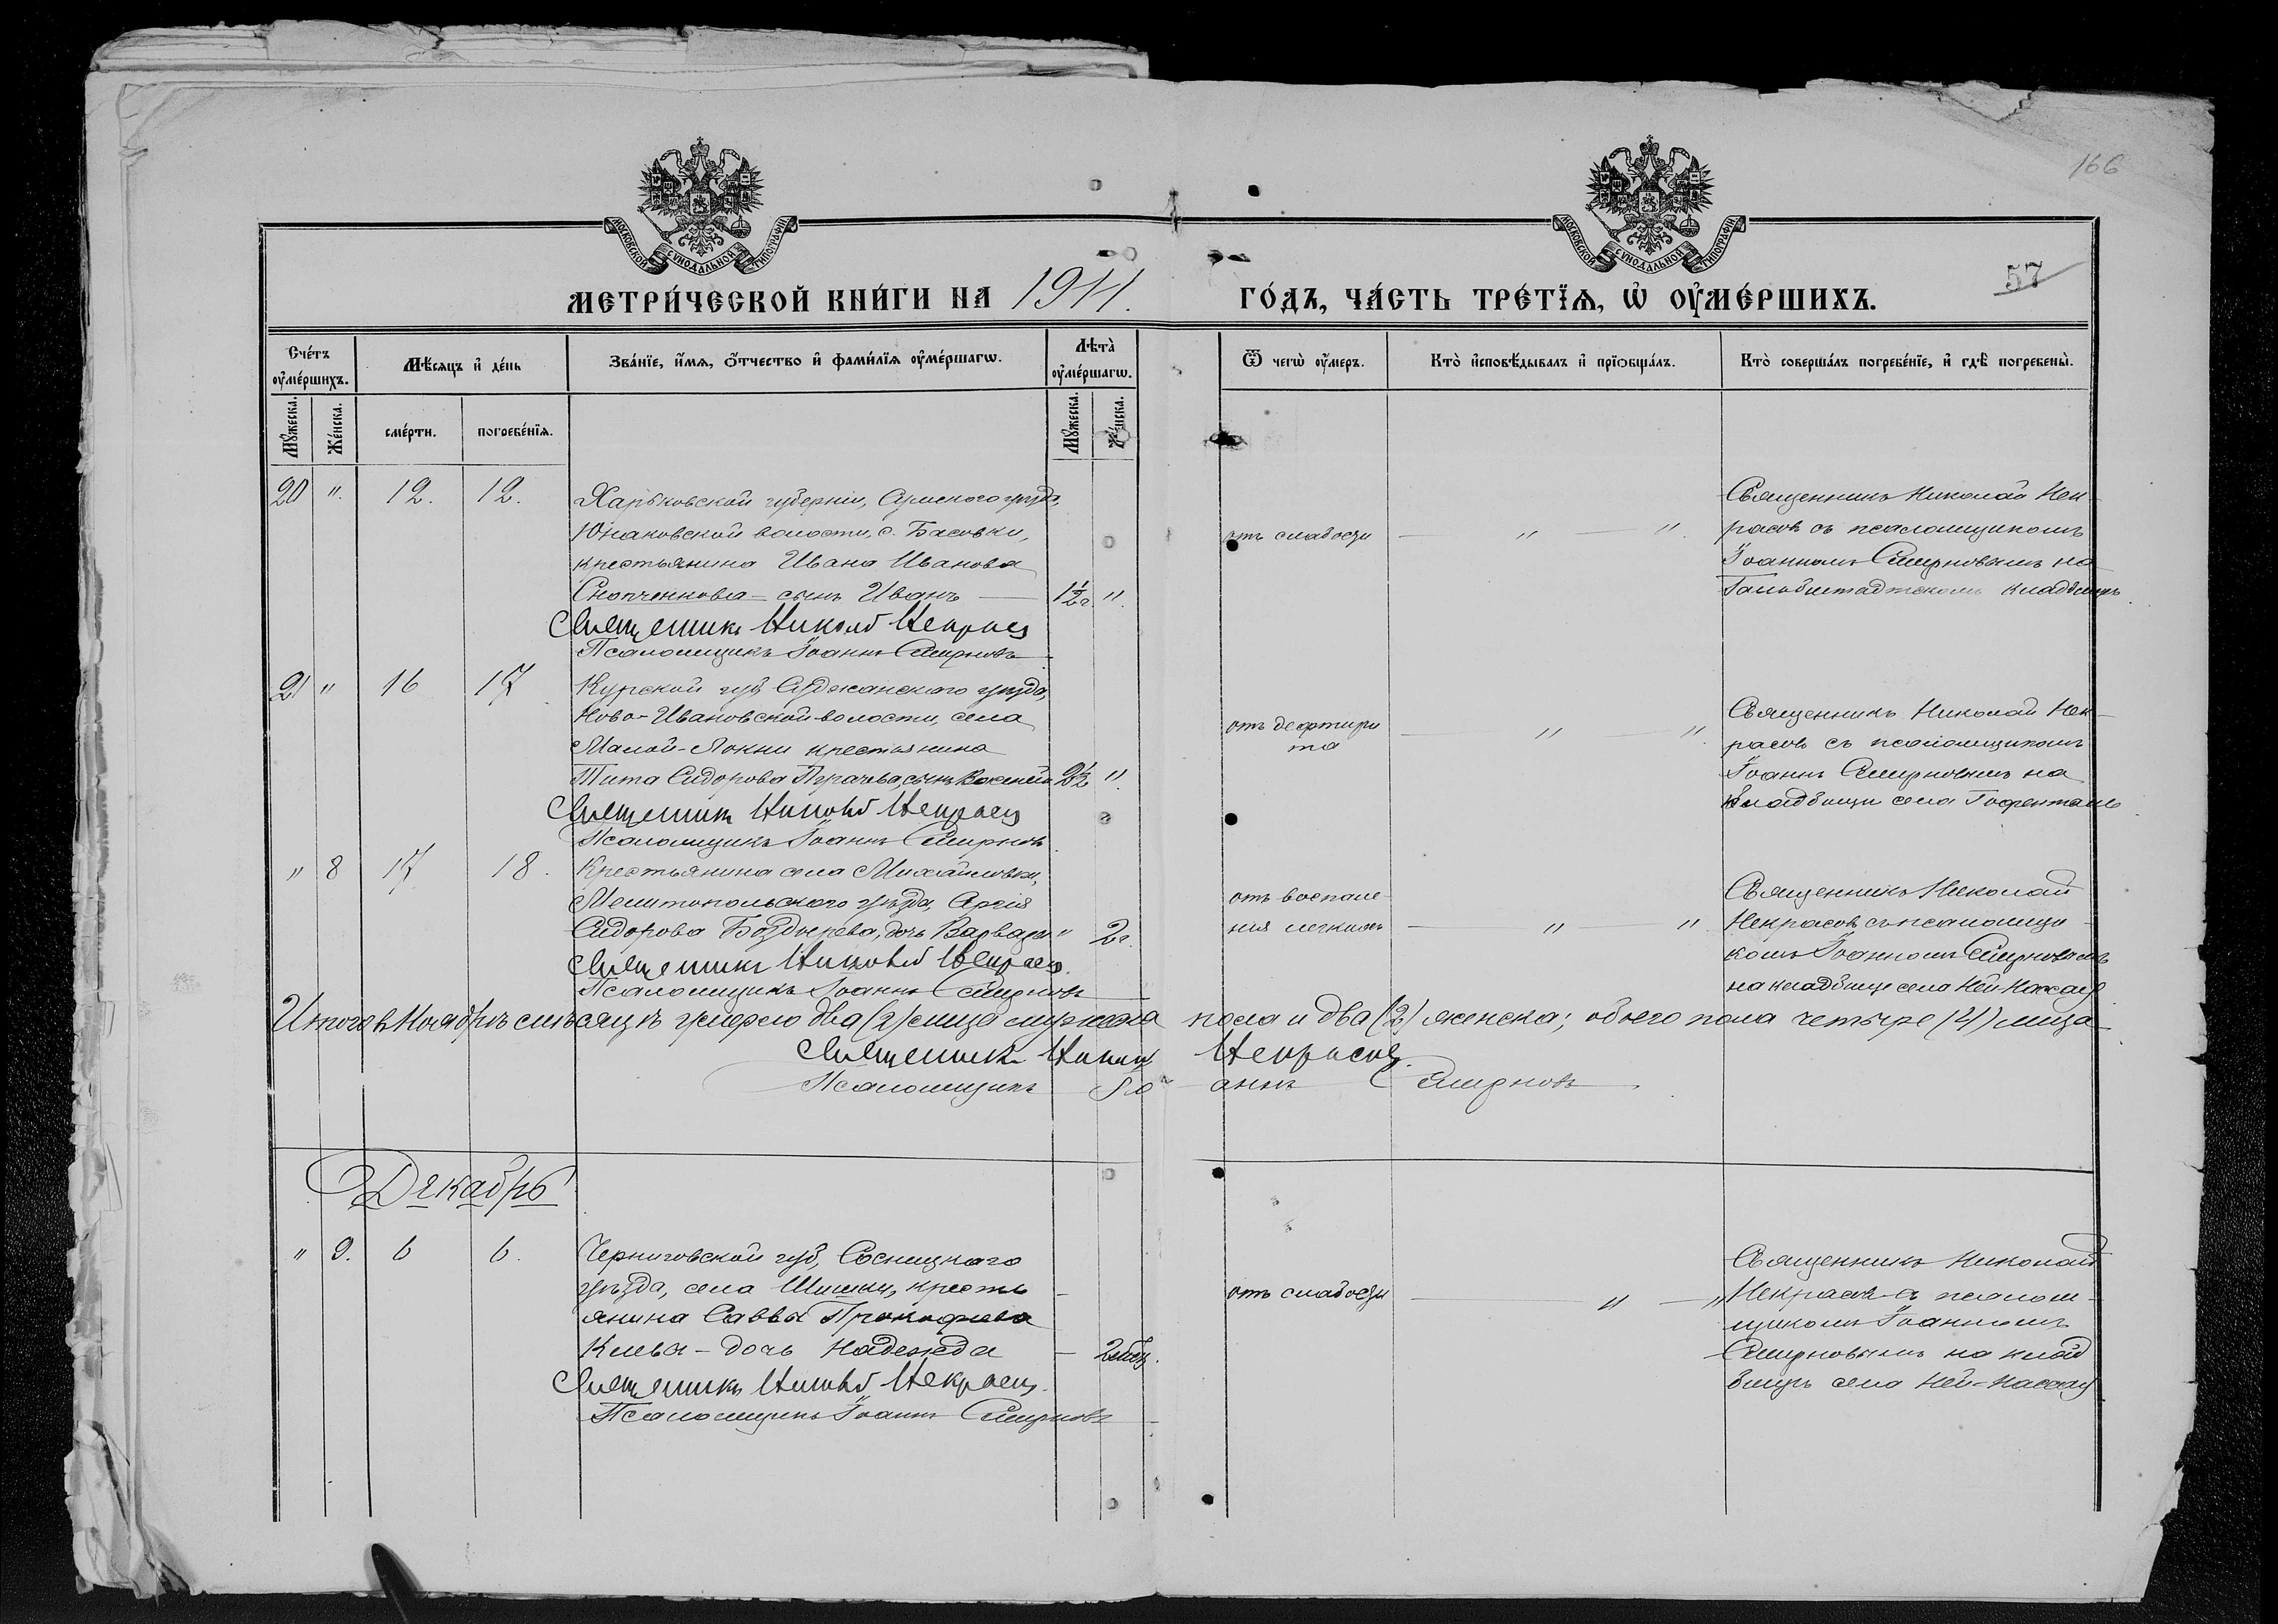 166
МОСКОВСКОЙ СѴНОДАЛЬНОЙ ТИПОГРАФІИ
МОСКОВСКОЙ СѴНОДАЛЬНОЙ ТИПОГРАФІИ
57
МЕТРИ́ЧЕСКОЙ КНИ́ГИ НА 1911. ГО́ДЪ, ЧА́СТЬ ТРЕ́ТЇѦ, Ѡ҆ ОУ҆МЕ́РШИХЪ.
Сче́тъ оу҆ме́ршихъ.
Мѣ́сяцъ и҆ де́нь
Зва́нїе, и҆́мѧ, ѻ҆́тчество и҆ фами́лїѧ оу҆ме́ршагѡ.
Лѣ́та оу҆ме́ршагѡ.
Ѿ чегѡ̀ оу҆́меръ.
Кто̀ и҆сповѣ́дывалъ и҆ прїѡбща́лъ.
Кто̀ соверша́лъ погребе́нїе, и҆ гдѣ̀ погребены̀.
Мꙋ́жеска.
Же́нска.
сме́рти.
погребе́нїѧ.
Мꙋ́жеска.
Же́нска.
20 " 12. 12.
Харьковской губерніи, Сумского уѣзда,
Юнаковской волости, с. Басовки,
крестьянина Ивана Иванова
Снопченкова – сынъ Иванъ — 1½ г "
Священникъ Николай Некрасовъ
Псаломщикъ Іоаннъ Смирновъ
отъ слабости — " — "
Священникъ Николай Нек-
расовъ съ псаломщикомъ
Іоанномъ Смирновымъ на
Гальбштадтскомъ кладбищѣ.
21 " 16 17
Курской губ Суджанскаго уѣзда,
Ново-Ивановской волости, села
Малой-Локни крестьянина
Тита Сидорова сынъ 2½ "
Священникъ Николай Некрасовъ
Псаломщикъ Іоаннъ Смирновъ
отъ дефтири
та — " — "
Священникъ Николай Нек-
расовъ съ псаломщикомъ
Іоанн Смирновымъ на
кладбищи села
" 8 17 18.
Крестьянина села Михайловки,
Мелитопольского уѣзда,
Сидорова дочь Варвара " 2 г.
Священникъ Николай Некрасовъ.
Псаломщикъ Іоаннъ Смирновъ
отъ воспале-
нія легкихъ — " — "
Священникъ Николай
Некрасовъ съ псаломщи-
комъ Іоанномъ Смирновымъ
на кладбище села Ней-Нассау
Итого в Ноябрѣ мѣсяцѣ умерло два (2) лица мужеска пола и два (2) женска; обоего пола четыре (4) лица
Священникъ Никол Некрасовъ.
Псаломщикъ Іоаннъ Смирновъ.
Декабрь
" 9. 6 6.
Черниговской губ, Сосницкаго
уѣзда, села Шишки, кресть
янина Саввы Прокофьева
дочь Надежда — 2 мѣс.
Священникъ Николай Некрасовъ.
Псаломщикъ Іоаннъ Смирновъ
отъ слабости — " — "
Священникъ Николай
Некрасовъ съ псалом-
щикомъ Іоанномъ
Смирновымъ на клад
бищѣ села Ней-Нассау